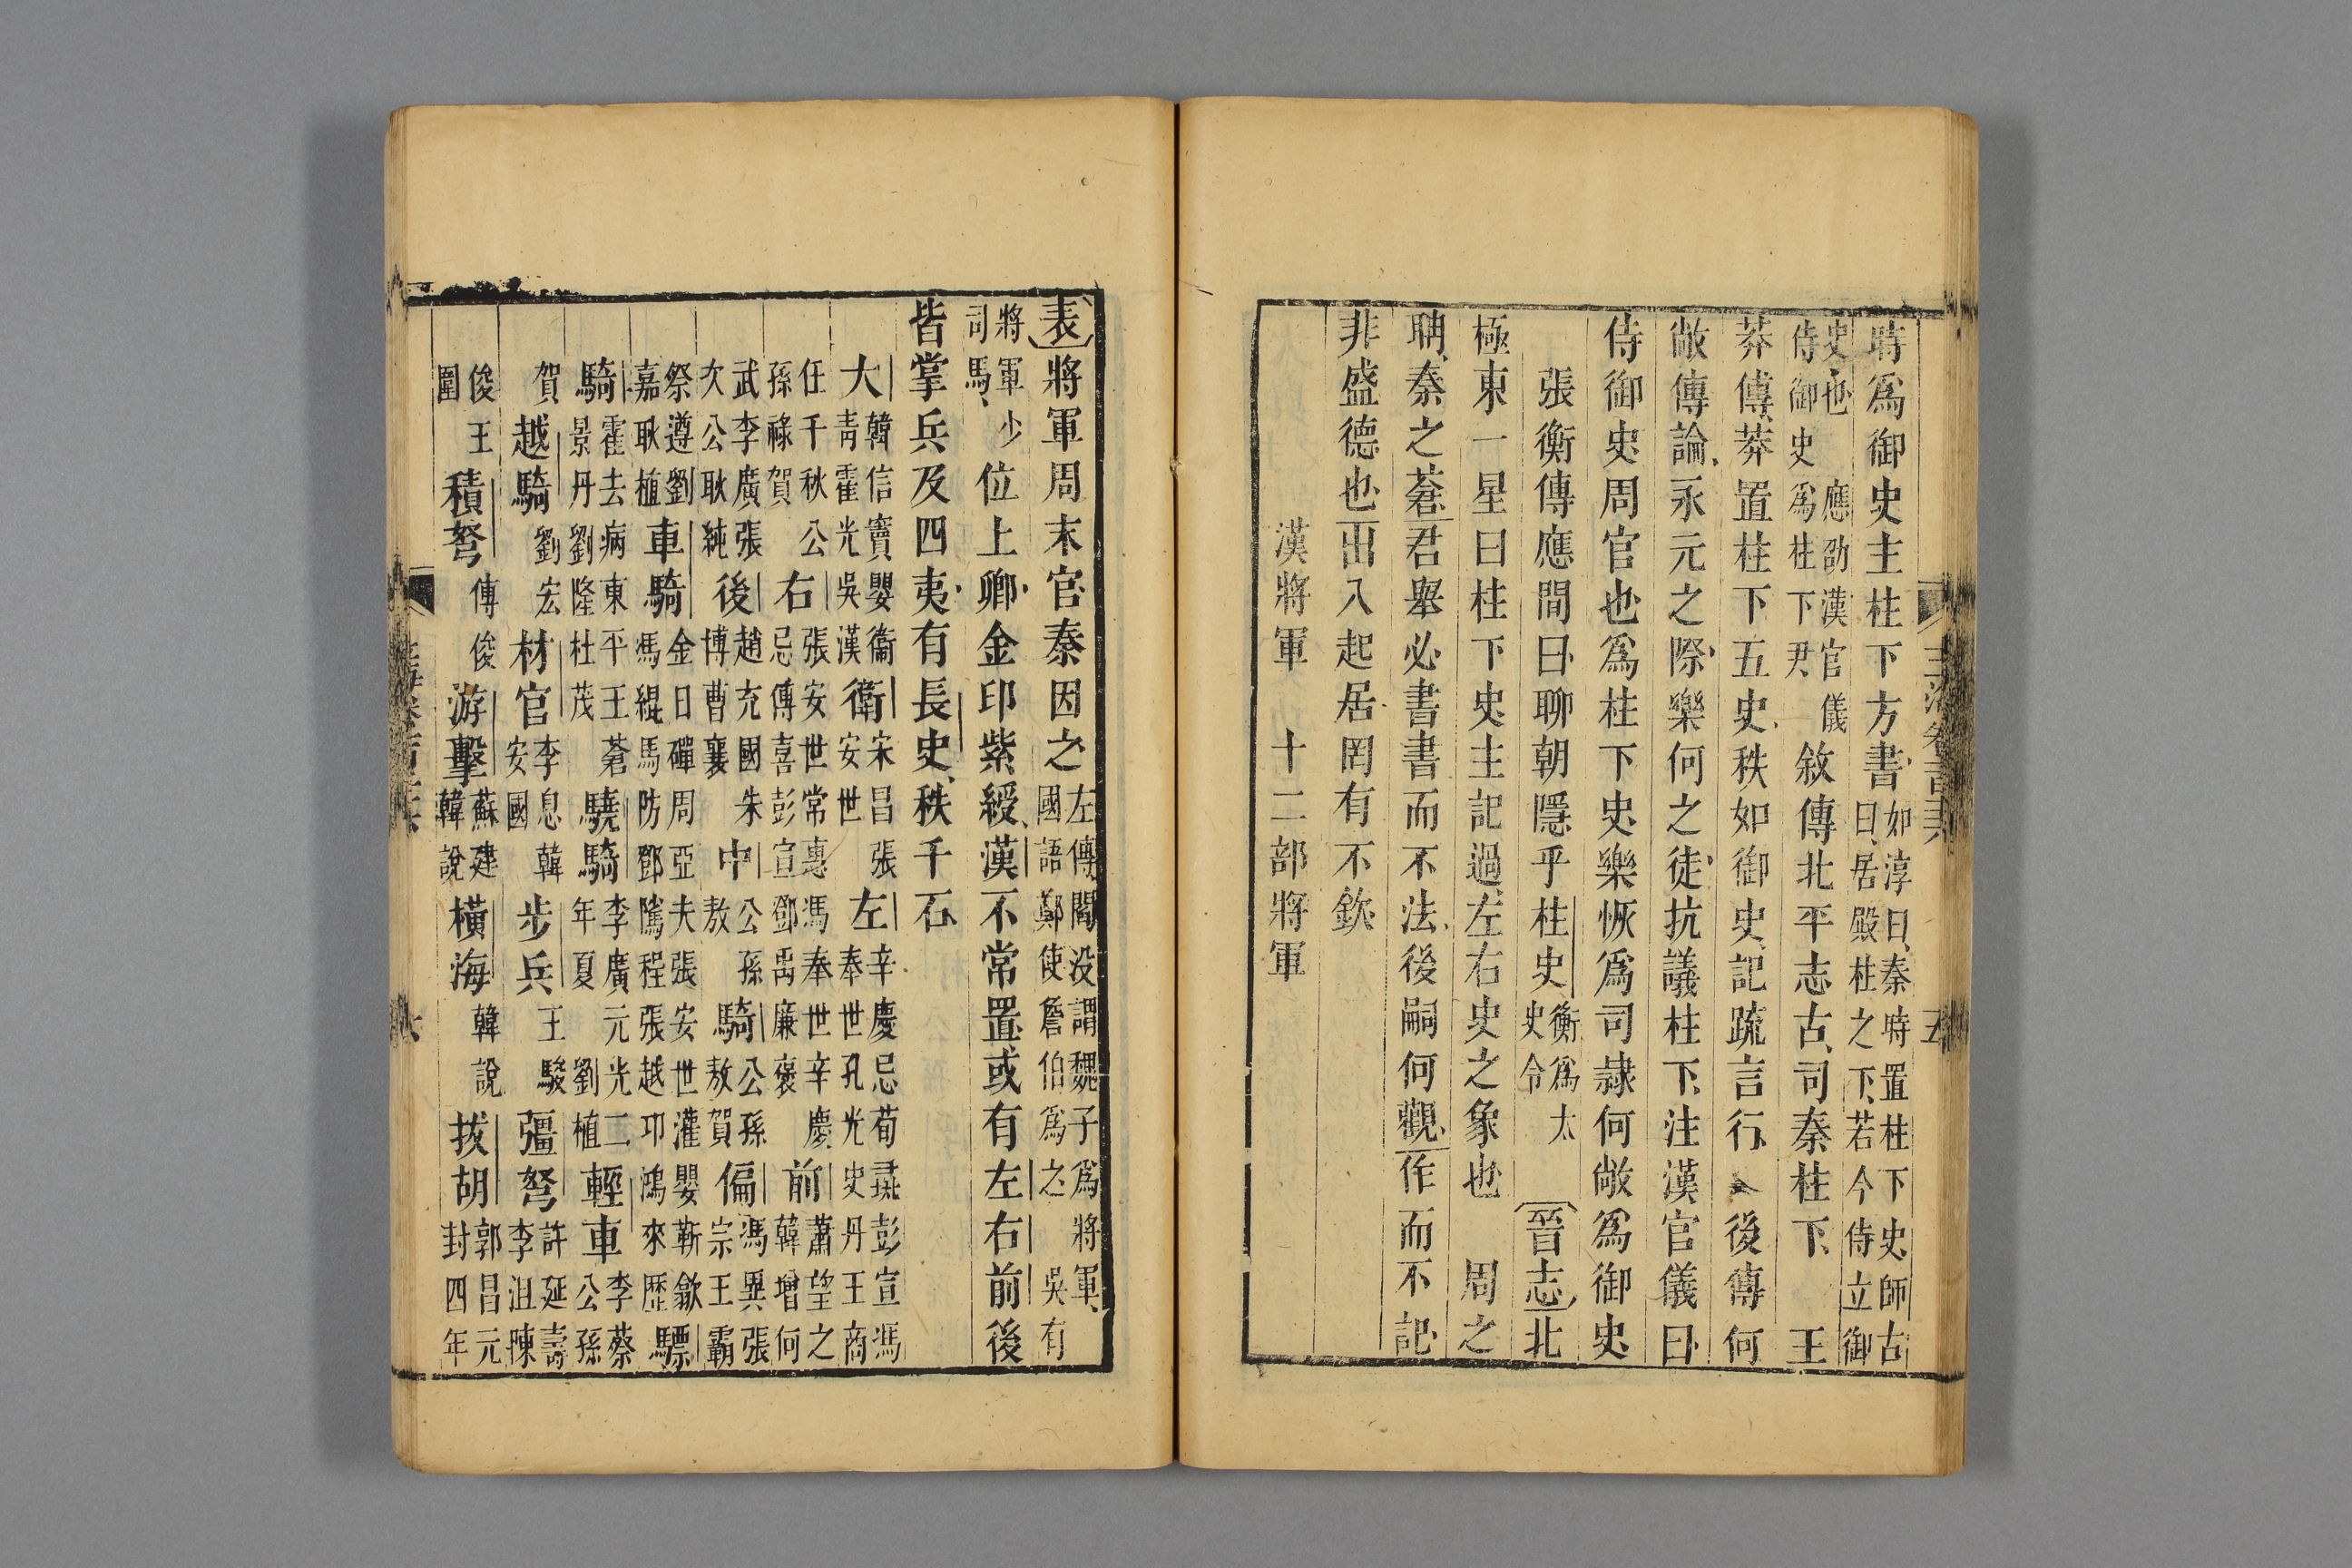 時爲御史主柱下方書如淳曰秦時置柱下史師古
曰居殿柱之下若今侍立御
史也　應劭漢官儀
侍御史爲柱下君　敘傳北平志古司秦柱下　王
莽傳莽置柱下五史秩如御史記疏言行　後傳何
敞傳論永元之際樂何之徒抗議柱下注漢官儀曰
侍御史周官也爲柱下史樂恢爲司隷何敞爲御史
張衡傳應間曰聊朝隱乎柱史衡爲太
史令　晉志北
極東一星曰柱下史主記過左右史之象也　周之
聃秦之蒼君舉必書書而不法後嗣何觀作而不記
非盛德也出入起居罔有不欽
漢將軍　十二部將軍
表將軍周末官秦因之左傳閻没謂魏子爲將軍吳有
國語鄭使詹伯爲之
將軍少
司馬　位上卿金印紫綬漢不常置或有左右前後
皆掌兵及四夷有長史秩千石
大韓信竇嬰衞
青霍光吳漢　衞宋昌張
安世　左辛慶忌荀彘彭宣馮
奉世孔光史丹王商
任千秋公
孫祿賀　右張安世常惠馮奉世辛慶
忌傅喜彭宣鄧禹廉褒　前蕭望之
韓增何
武李廣張
次公耿純　後趙充國朱
博曹襄　中公孫
敖　騎公孫
敖賀　偏馮異張
宗王霸
祭遵劉
嘉耿植　車騎金日磾周亞夫張安世灌嬰靳歙
馮緄馬防鄧隲程張越邛鴻來歷　驃
騎霍去病東平王蒼
景丹劉隆杜茂　驍騎李廣元光二
年夏　劉植　輕車李蔡
公孫
賀　越騎劉宏　材官李息韓
安國　步兵王駿　彊弩許延壽
李沮陳
俊王
圍　積弩傅俊　游擊蘇建
韓說　橫海韓說　拔胡郭昌元
封四年